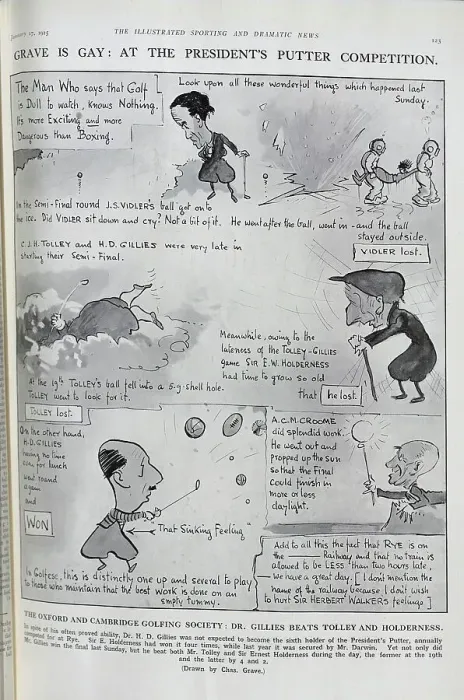 January 17, 1925
THE ILLUSTRATED SPORTING AND DRAMATIC NEWS
GRAVE IS GAY: AT THE PRESIDENT'S PUTTER COMPETITION.
The Man Who says that Golf
is Dull to watch, Knows Nothing.
It's more Exciting and more
Dangerous than Boxing.
Look upon all these wonderful things which happened last
Sunday.
In the Semi-Final round J.S. VIDLER'S ball got onto
the ice. Did VIDLER sit down and cry? Not a bit of it. He went after the ball, went in - and the ball
stayed outside.
VIDLER lost.
C.J.H. TOLLEY and H.D. GILLIES were very late in
starting their Semi-Final.
Meanwhile, owing to the
lateness of the TOLLEY-GILLIES
game SIR E.W. HOLDERNESS
had time to grow so old
that he lost.
At the 19th TOLLEY'S ball fell into a 5.9 shell hole.
TOLLEY went to look for it.
TOLLEY lost.
On the other hand,
H.D. GILLIES
having no time
for lunch
went round
again
and
WON
"That Sinking Feeling"
A.C.M. CROOME
did splendid work.
He went out and
propped up the Sun
so that the Final
could finish in
more or less
daylight.
In Golfese, this is distinctly one up and several to play
to those who maintain that the best work is done on an
empty tummy.
Add to all this the fact that RYE is on
the —— Railway and that no train is
allowed to be LESS than two hours late,
we have a great day. [I don't mention the
name of the railway because I don't wish
to hurt SIR HERBERT WALKER'S feelings]
THE OXFORD AND CAMBRIDGE GOLFING SOCIETY: DR. GILLIES BEATS TOLLEY AND HOLDERNESS.
In spite of his often proved ability, Dr. H. D. Gillies was not expected to become the sixth holder of the President's Putter, annually
competed for at Rye. Sir E. Holderness had won it four times, while last year it was secured by Mr. Darwin. Yet not only did
Mr. Gillies win the final last Sunday, but he beat both Mr. Tolley and Sir Ernest Holderness during the day, the former at the 19th
and the latter by 4 and 2.
(Drawn by Chas. Grave.)